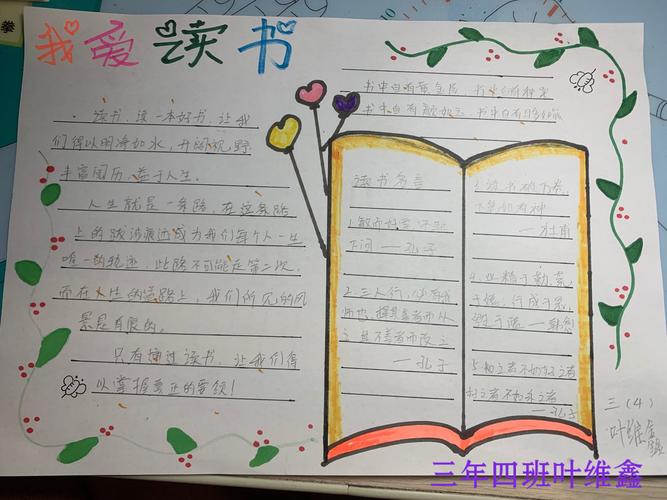 我爱读书
读书,读一本好书,让我
们得以明净如水,开阔视野
丰富阅历,益于人生。
人生就是一条路,在这条路
上的跋涉痕迹成为我们每个人一生
唯一的轨迹,此路不可能走第二次,
而在人生的道路上,我们所见的风
景是有限的。
只有通过读书,让我们得
以掌握真正的要领!
书中自有黄金屋,书中自有千钟粟
书中自有颜如玉,书中自有
读书名言
1.敏而好学,不耻
下问——孔子
2.三人行,必有我
师也,择其善者而从
之,其不善者而改之
——孔子
3.读书破万卷,
下笔如有神
——杜甫
4.业精于勤,荒
于嬉,行成于思,
毁于随——韩愈
5.知之者不如好之者
好之者不如乐之者
——孔子
三(4)
叶维鑫
三年四班叶维鑫